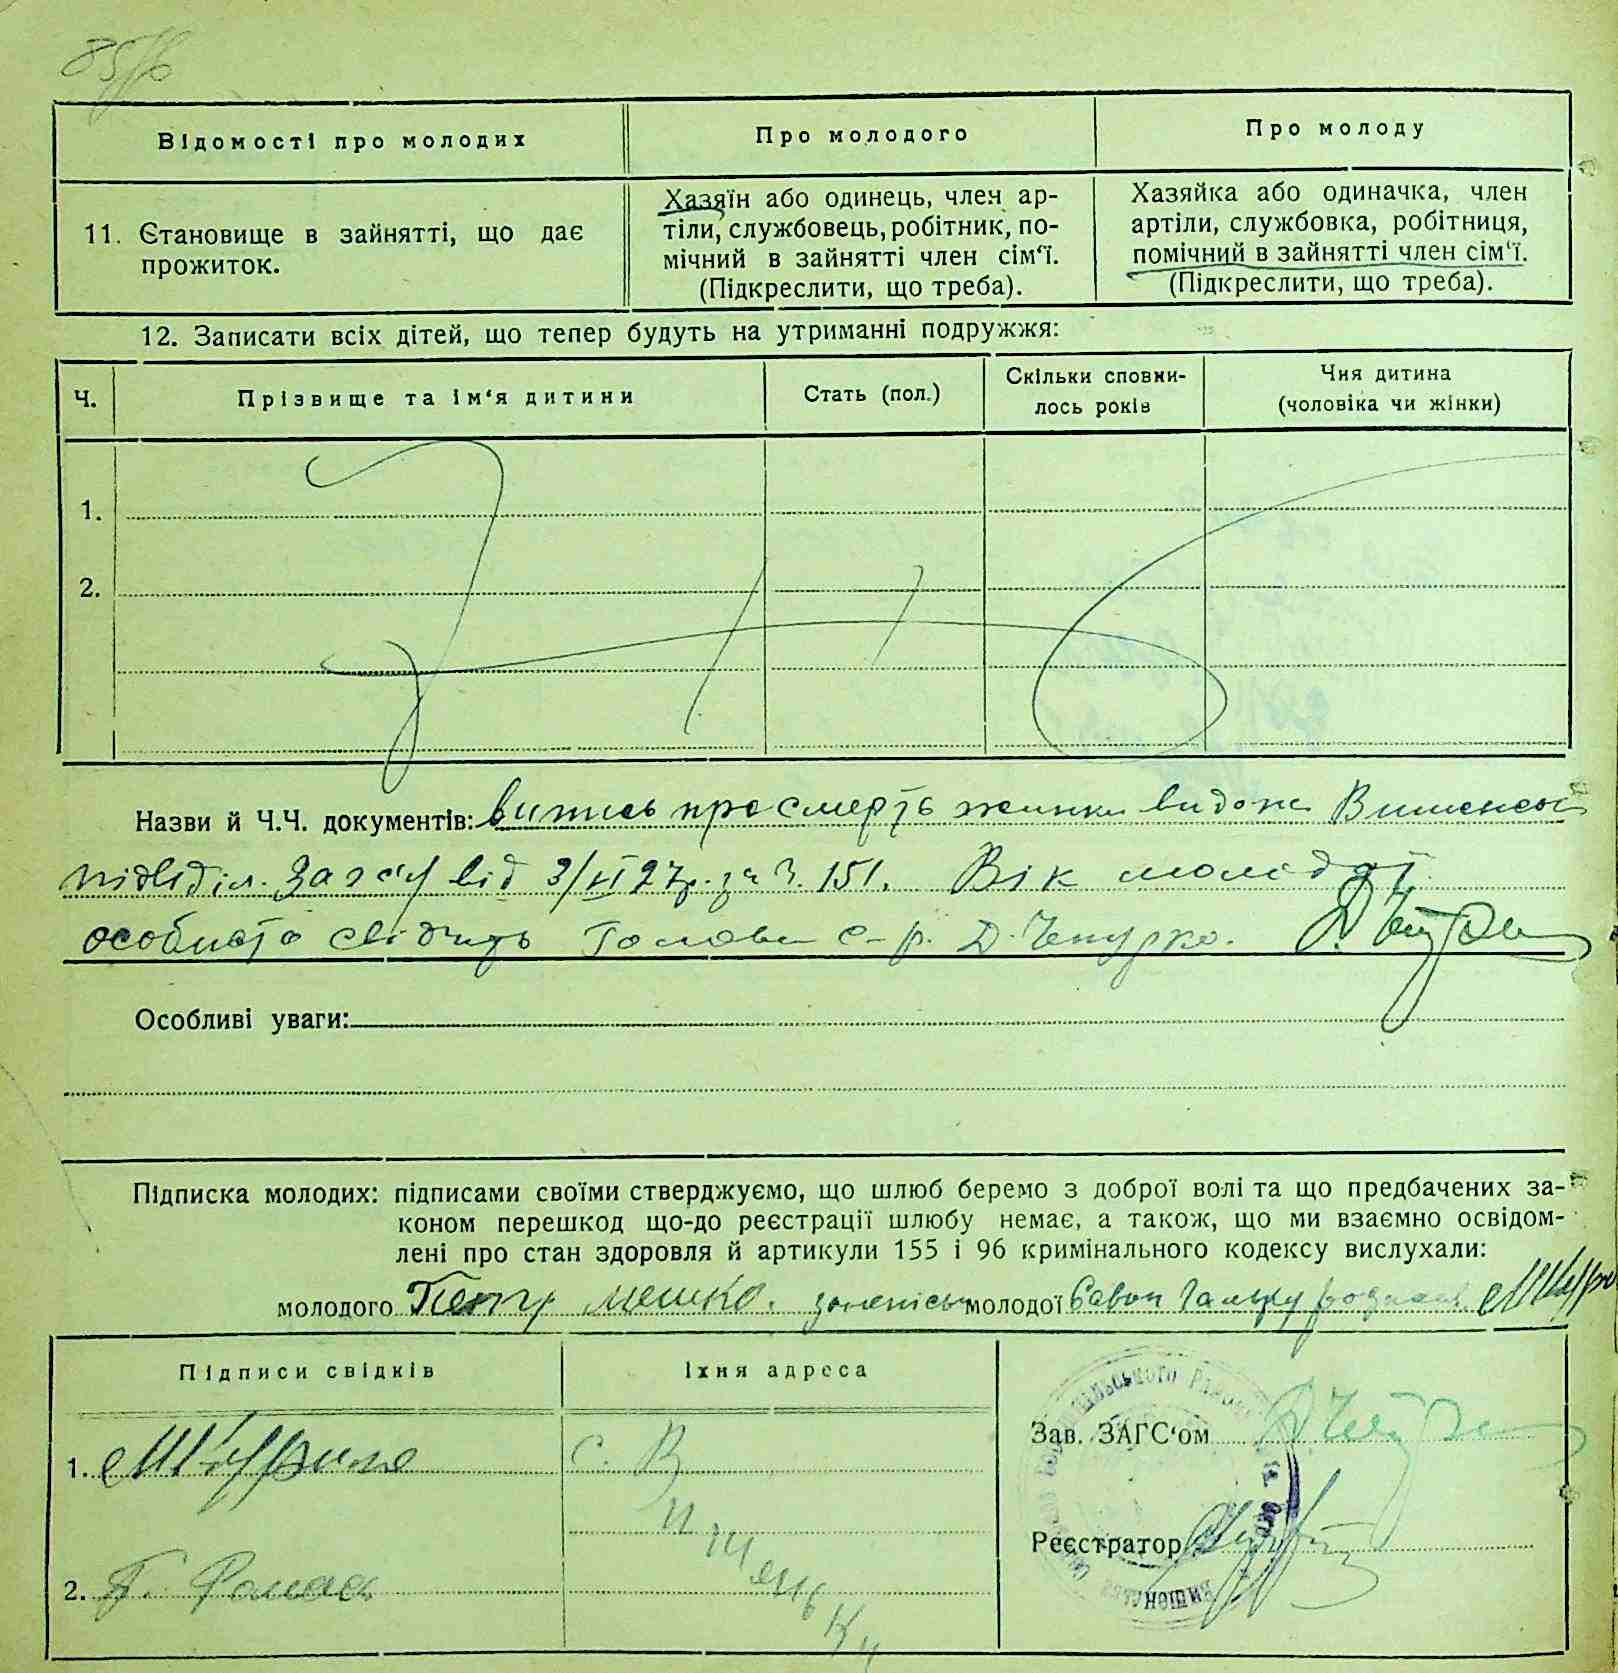 Відомості про молодих
Про молодого
Про молоду
11. Єтановище в зайнятті, що дає
прожиток.
Хазяїн або одинець, член ар-
тіли, службовець, робітник, по-
мічний в зайнятті член сім‘ї.
(Підкреслити, що треба).
Хазяйка або одиначка, член
артіли, службовка, робітниця,
помічний в зайнятті член сім‘ї.
(Підкреслити, що треба).
12. Записати всіх дітей, що тепер будуть на утриманні подружжя:
Ч.
Прізвище та ім‘я дитини
Стать (пол.)
Скільки сповни-
лось років
Чия дитина
(чоловіка чи жінки)
1.
2.
Назви й Ч.Ч. документів: витись про смерть жинки видана
підвідділ. Загс'у від 3/VI 27р. за ч. 151. Вік молодої
особисто свідчить Голова с-р. Д. Чепурко.
Особливі уваги:
Підписка молодих: підписами своїми стверджуємо, що шлюб беремо з доброї волі та що предбачених за-
коном перешкод що-до реєстрації шлюбу немає, а також, що ми взаємно освідом-
лені про стан здоровля й артикули 155 і 96 кримінального кодексу вислухали:
молодого Петр Мешко. молодої
Підписи свідків
Їхня адреса
1.
с. В
2. Г.
Зав. ЗАГС‘ом
Реєстратор